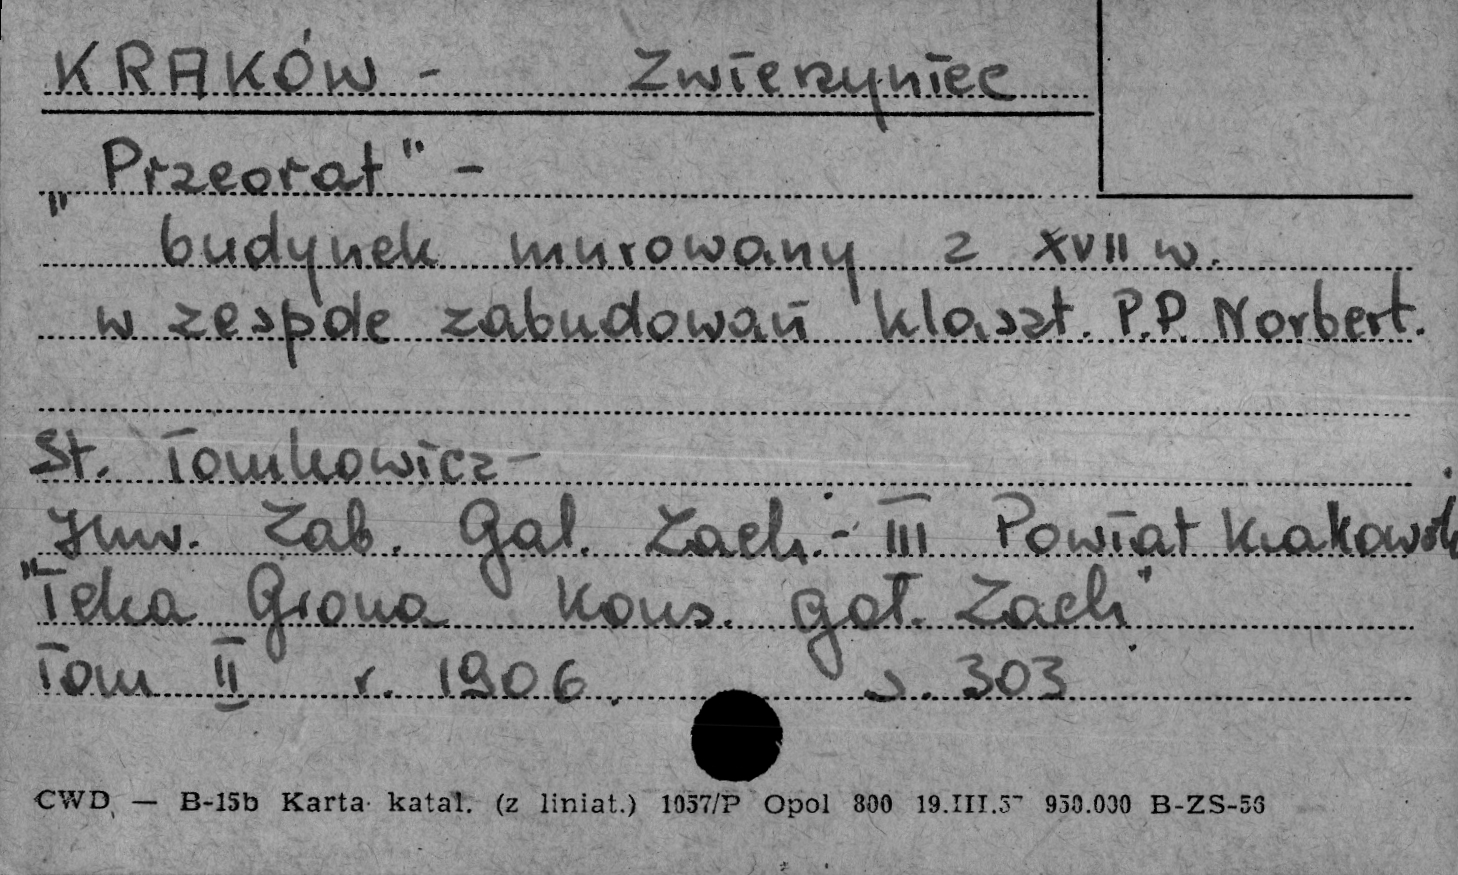 KRAKÓW - Zwierzyniec
„Przeorat" -
budynek murowany z XVII w.
w zespole zabudowań klaszt. P.P. Norbert.
St. Tomkowicz -
Inw. Zab. Gal. Zach. - III Powiat Krakowski
"Teka Grona Kons. Gal. Zach."
Tom II r. 1906. s. 303
CWD, — B-15b Karta katal. (z liniat.) 1057/P Opol 800 19.III.57 950.000 B-ZS-56